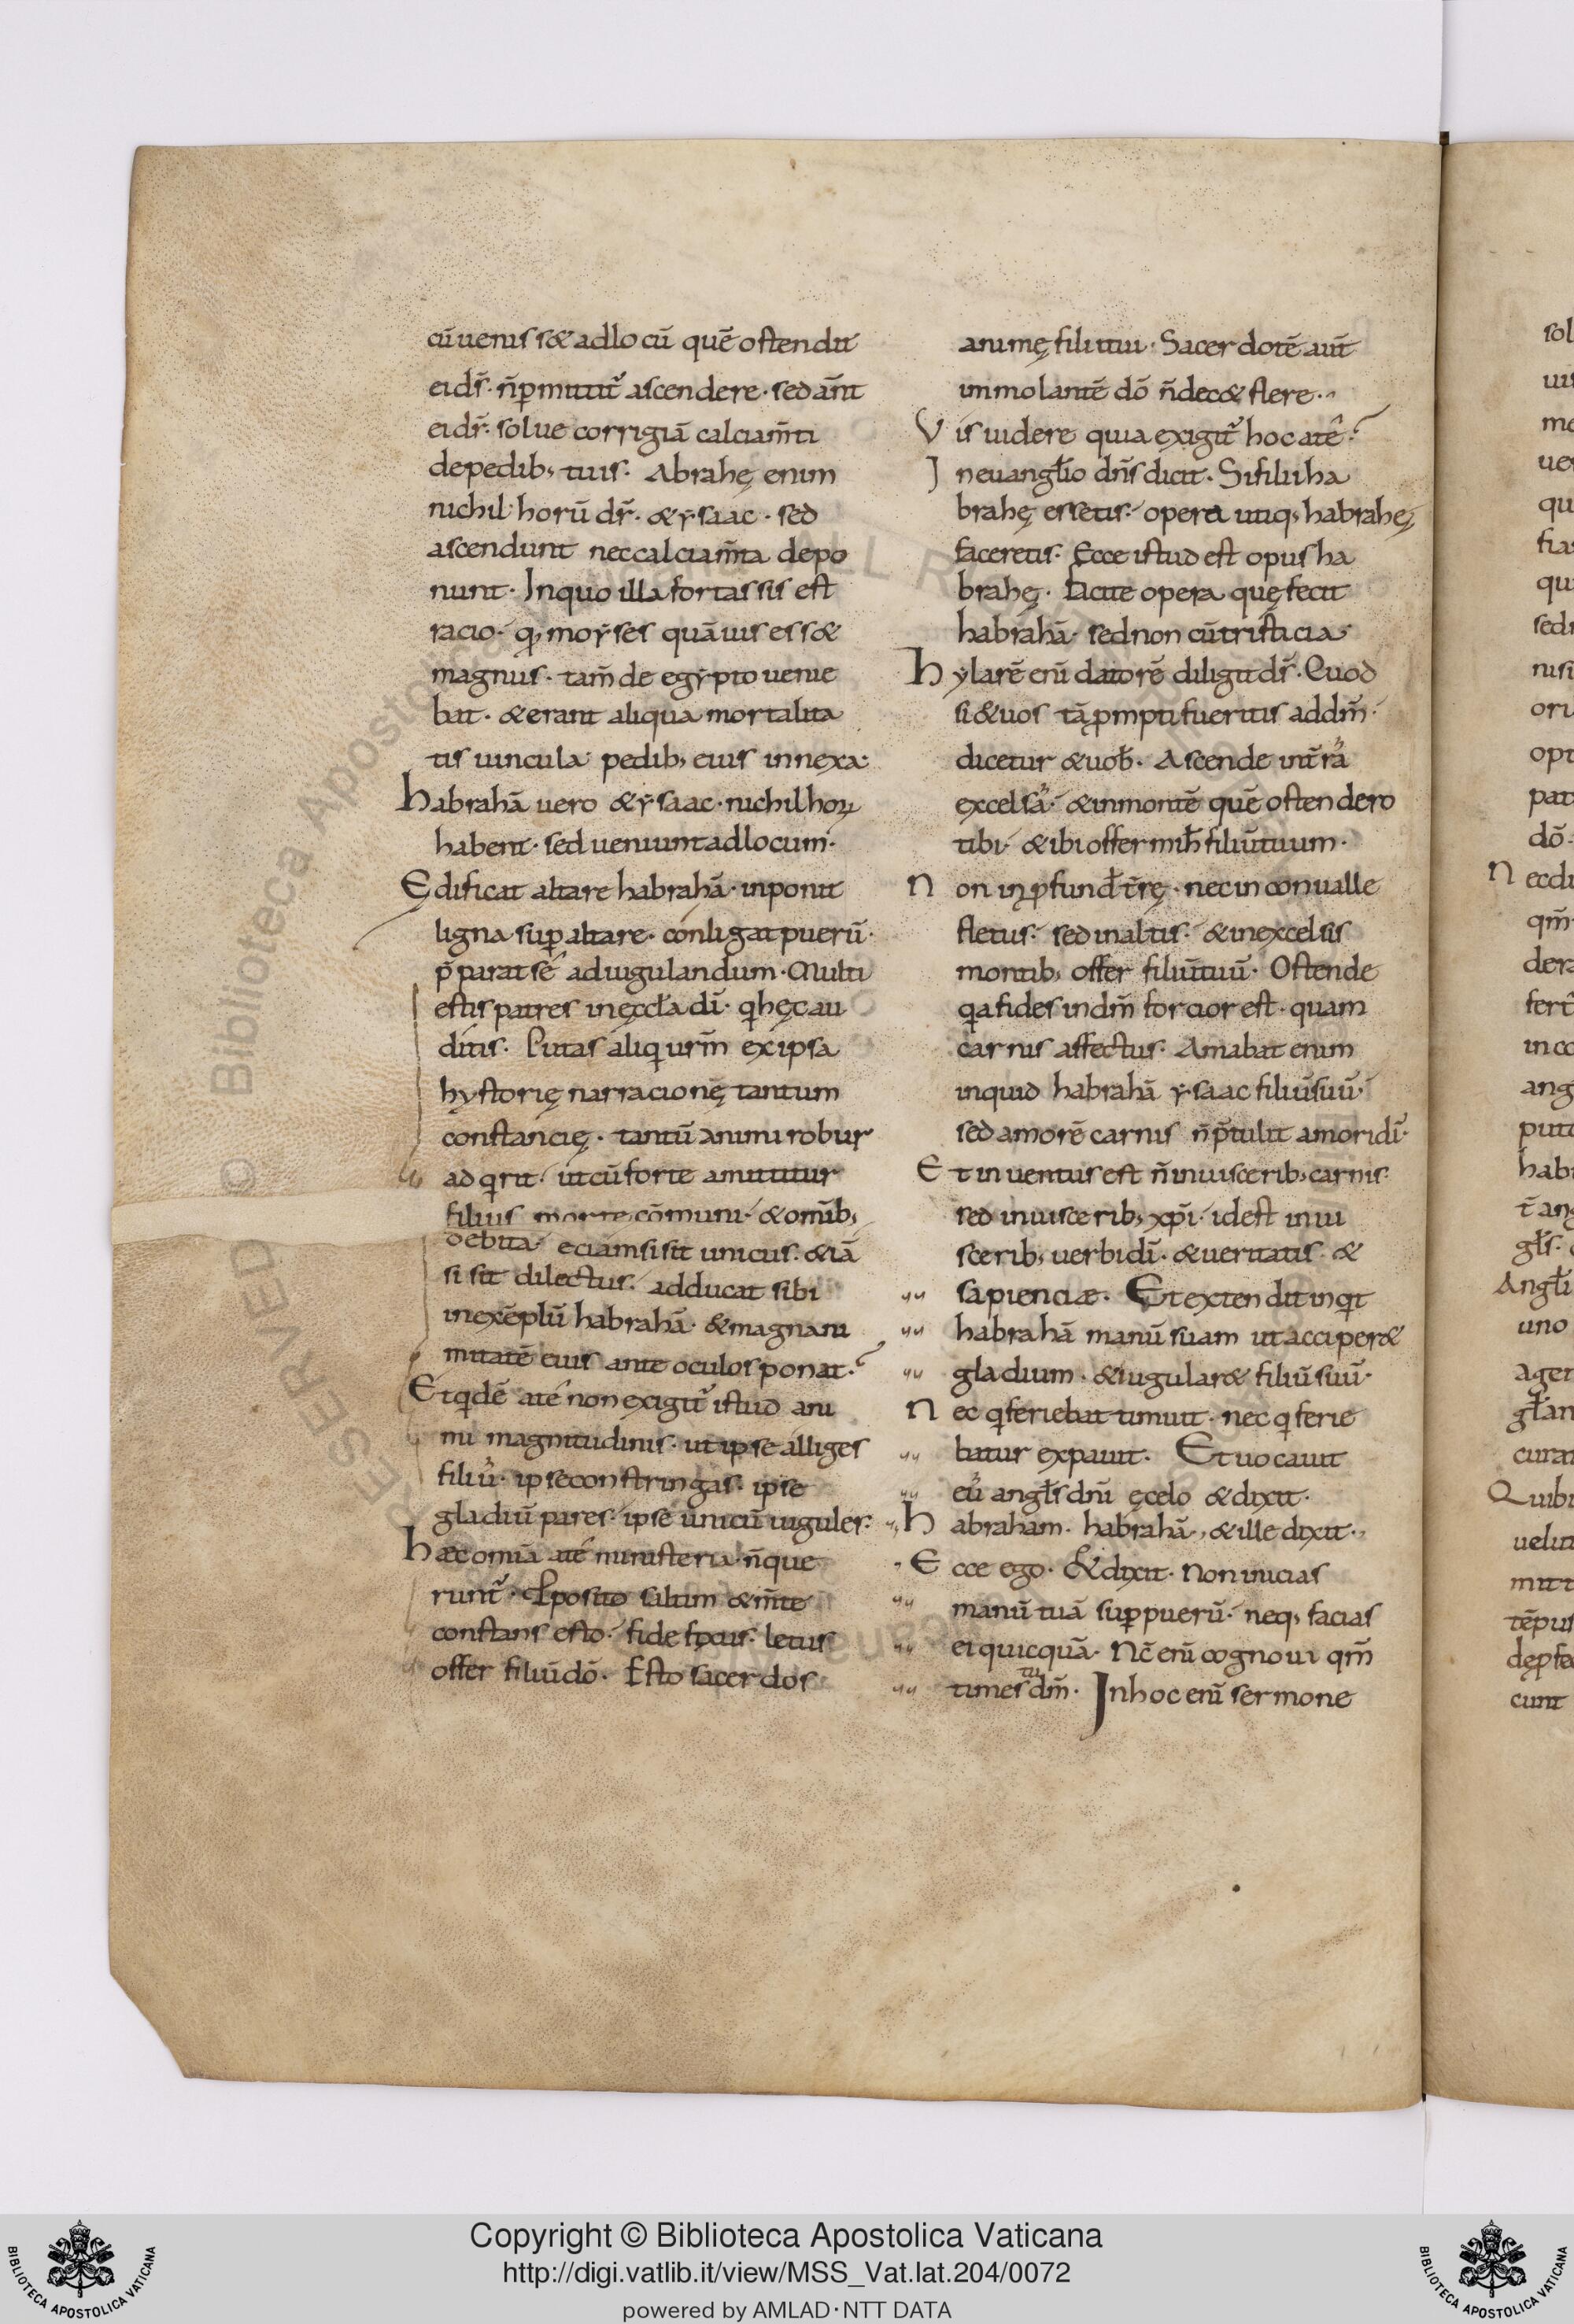 cū uenisset ad locū quē ostendit
ei ds̄· n̄ p̄mittit᷑ ascendere· sed añt
ei dr̄· solue corrigiā calciam̄ti
de pedib; tuis· Abrahę enim
nichil· horū dr̄· & ẏsaac· sed
ascendunt nec calciam̄ta depo
nunt· In quo illa fortassis est
racio· q; moẏses quāuis ess&
magnus· tam̄ de egẏpto uenie
bat· & erant aliqua mortalita
tis uincula· pedib; eius innexa·
habrahā uero & ẏsaac· nichil hoꝝ
habent· sed ueniunt ad locum·
Edificat altare habrahā· inponit
ligna sup̄ altare· conligat puerū·
p̄parat sé ad iugulandum· Multi
estis patres in ęccl̄a dī· q̄ hęc au
ditis· Putas aliq̄ ur̄m ex ipsa
hystorię narracionę tantum
constancię· tantū animi robur
adq̄rit· ut cū forte amittitur
filius morte cōmuni· & om̄ib;
debita· eciam si sit unicus· & iā
si sit dilectus· adducat sibi
in exēplū habrahā· & magnani
mitatē eius ante oculos ponat·?
Et q̄dē a té non exigit᷑ istud ani
mi magnitudinis· ut ipse alliges
filiū· ipse constringas· ipse
gladiū pares· ipse unicū iugules·
hæc omīa a té ministeria n̄ que
runt᷑· Pposito saltim & m̄te
constans esto· fide fixus· letus
offer filiū dō· Esto sacerdos
animę filii tui· Sacerdotē aut̄
immolantē dō n̄ dec& flere·
Vis uidere quia exigit᷑ hoc a té·?
In euangl̄io dn̄s dicit· Si filii ha
brahę essetis· opera utiq; habrahę
faceretis· Ecce istud est opus ha
brahę· Facite opera quę fecit
habrahā· sed non cū tristicia
hẏlarē enī datorē diligit ds̄· Quod
si & uos tā p̄mpti fueritis ad dm̄·
dicetur & uob̄· Ascende in t̄rā
excelsā· & in montē quē ostendero
tibi· & ibi offer mih̄ filiū tuum·
Non in p̄fund̄ t̄rę· nec in conualle
fletus· sed in altis· & in excelsis
montib; offer filiū tuū· Ostende
q̄a fides in dm̄ forcior est· quam
carnis affectus· Amabat enim
inquid habrahā ẏsaac filiū suū·
sed amorē carnis n̄ p̄tulit amori dī·
Et inuentus est n̄ in uiscerib; carnis·
sed in uiscerib; xp̄i· id est in ui
scerib; uerbi dī· & ueritatis· &
sapienciæ· Et extendit inq̄t
habrahā manū suam ut acciper&
gladium· & iugular& filiū suū·
Nec q̄ feriebat timuit· nec q̄ ferie
batur expauit· Et uocauit
eū angl̄s dnī ęcelo & dixit·
habraham· habrahā, & ille dixit·
Ecce ego· & dixit· Non inicias
manū tuā sup̄ puerū· neq; facias
ei quicquā· Nc̄ enī cognoui qm̄
times tu dm̄· In hoc enī sermone
Copyright © Biblioteca Apostolica Vaticana
http://digi.vatlib.it/view/MSS_Vat.lat.204/0072
powered by AMLAD·NTT DATA